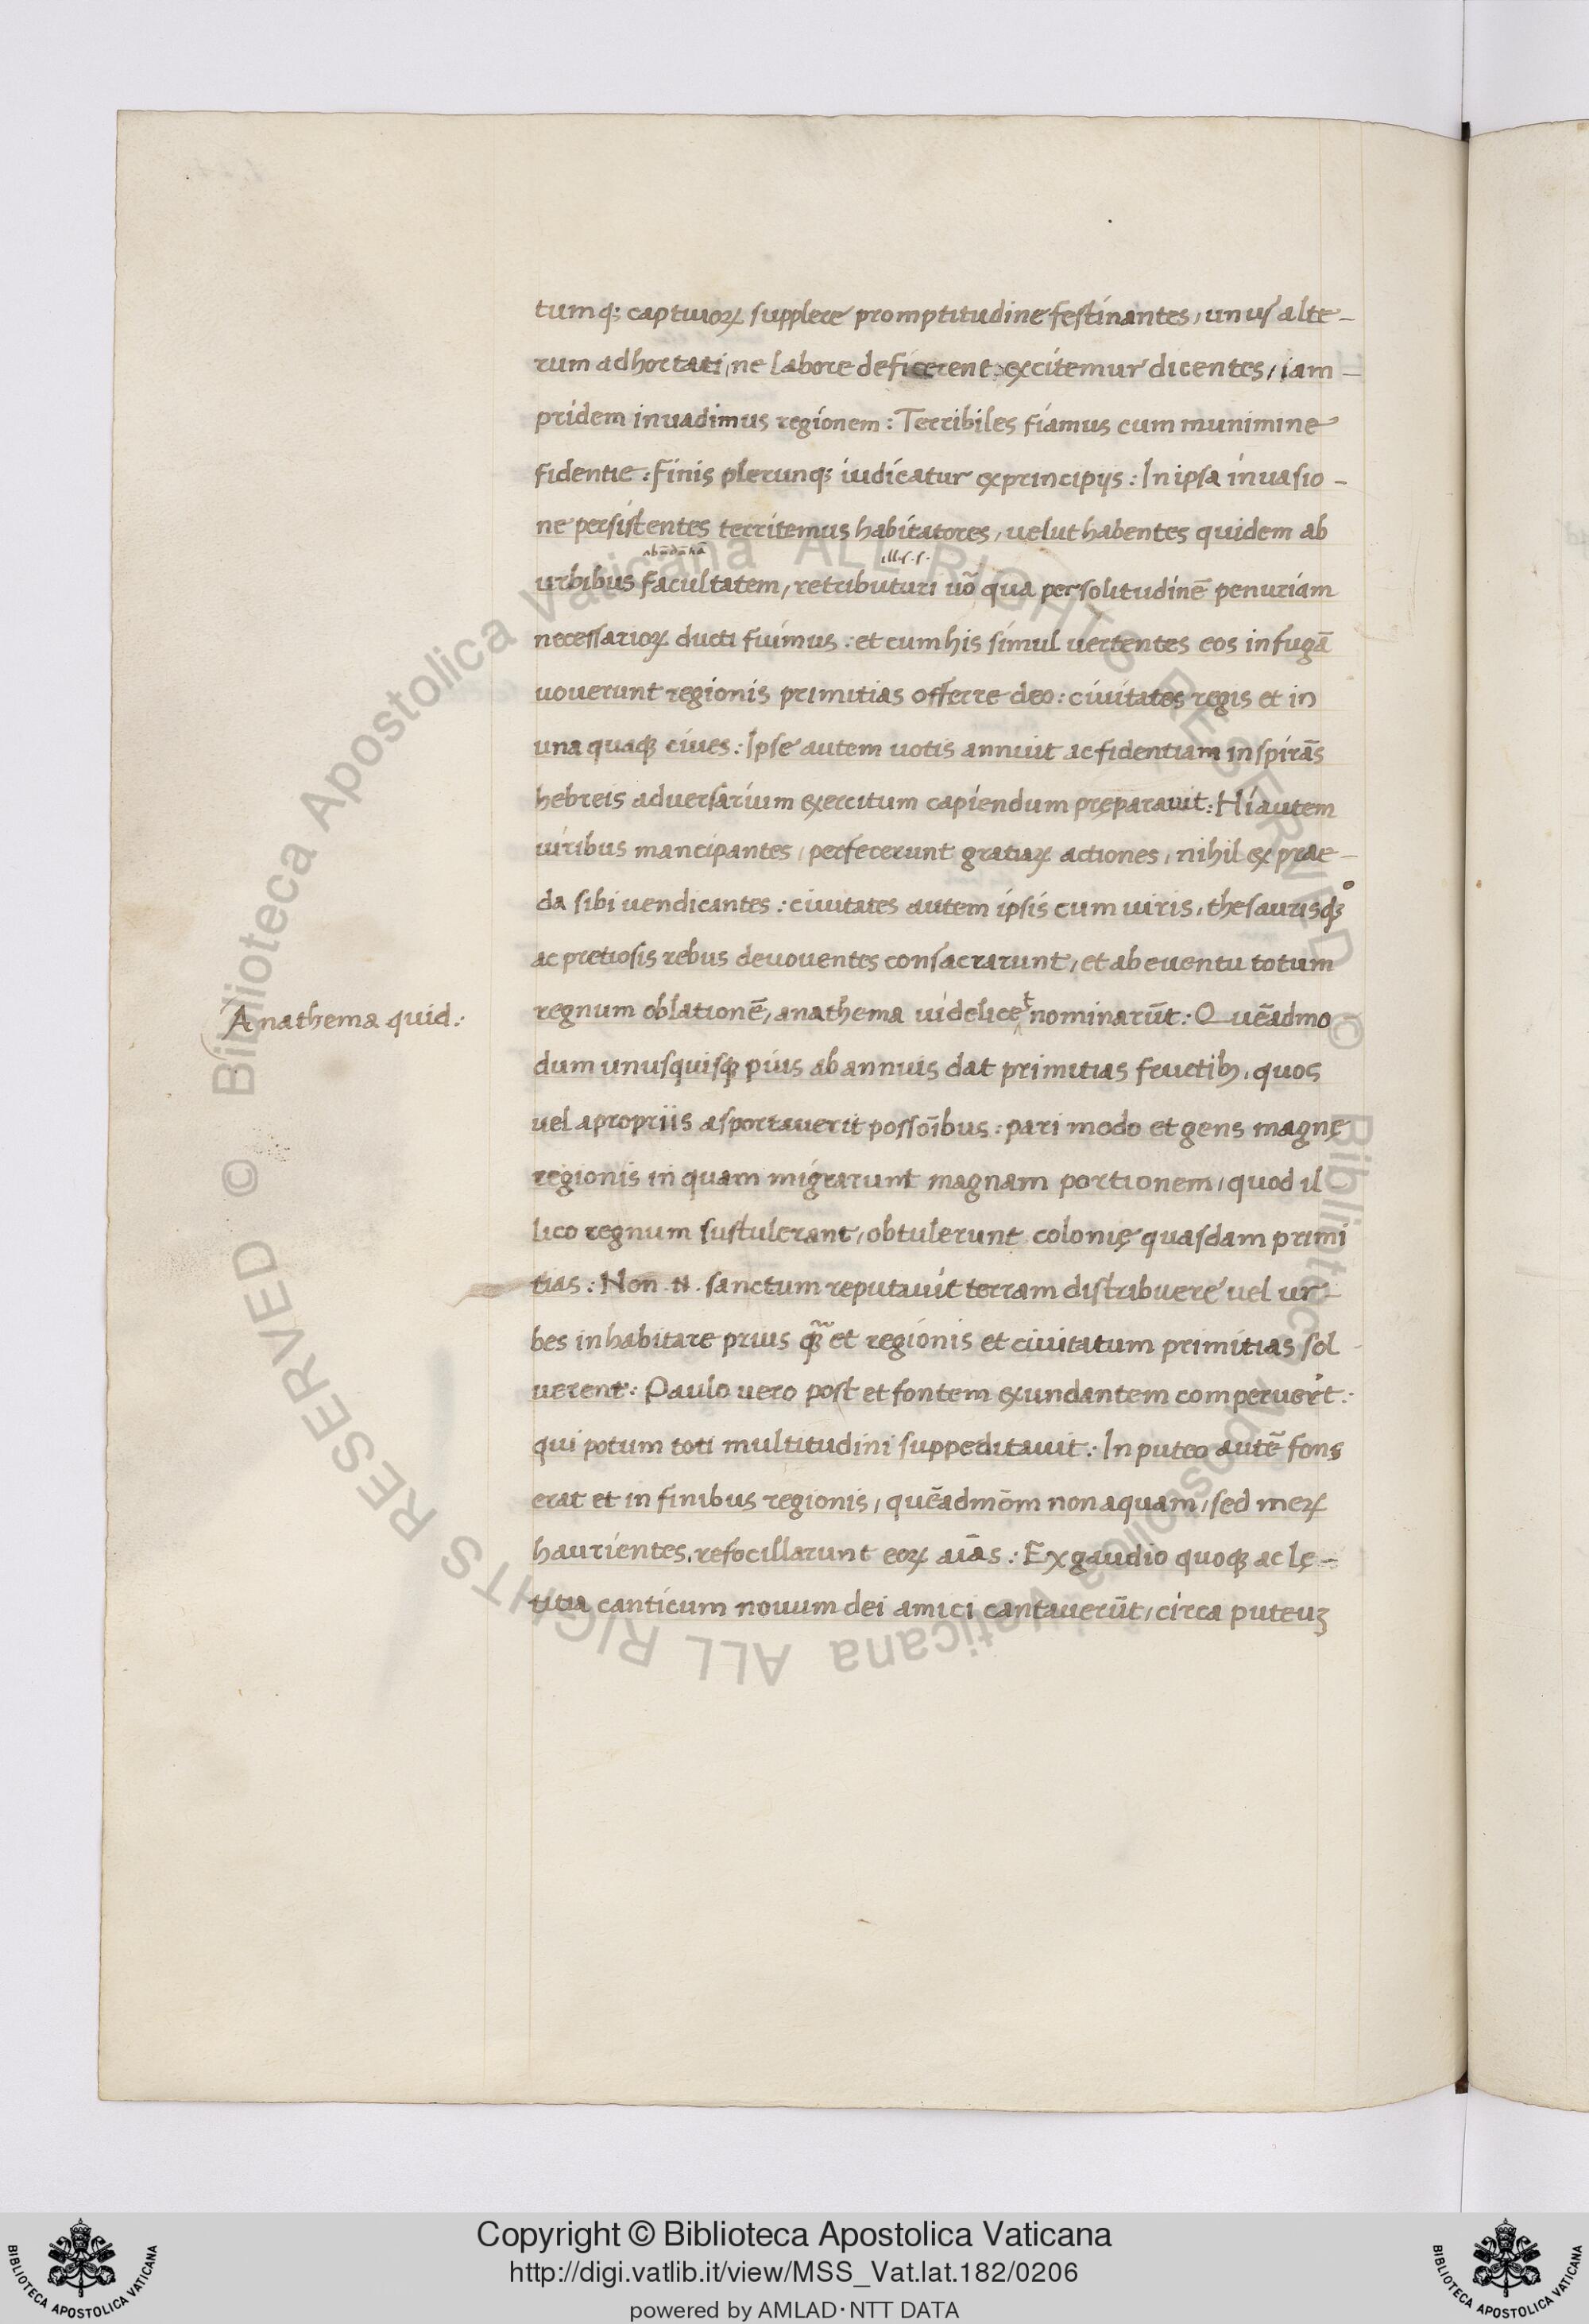 tumq; captiuoꝝ supplere promptitudine festinantes, unus alte-
rum adhortati, ne labore deficerent: excitemur dicentes, iam-
pridem inuadimus regionem: Terribiles fiamus cum munimine
fidentie: Finis plerunq; iudicatur ex principijs: In ipsa inuasio-
ne persistentes territemus habitatores, uelut habentes quidem ab
abūdātiā
ills. s.
urbibus facultatem, retributuri uō qua per solitudinē penuriam
necessarioꝝ ducti fuimus: et cum his simul uertentes eos in fugā
uouerunt regionis primitias offerre deo: ciuitates regis et in
una quaqꝫ ciues: Ipse autem uotis annuit ac fidentiam inspirās
hebreis aduersarium exercitum capiendum pręparauit: Hi autem
uiribus mancipantes, perfecerunt gratiaꝝ actiones, nihil ex prae-
da sibi uendicantes: ciuitates autem ipsis cum uiris, thesaurisqꝫ
ac pretiosis rebus deuouentes consacrarunt, et ab euentu totum
Anathema quid:
regnum oblationē, anathema uidelicet nominarūt: Quēadmo
dum unusquisqꝫ pius ab annuis dat primitias fructibꝫ, quos
uel a propriis asportauerit possōibus: pari modo et gens magnę
regionis in quam migrarunt magnam portionem, quod il
lico regnum sustulerant, obtulerunt colonię quasdam primi
tias: Non .n. sanctum reputauit terram distribuere uel ur-
bes inhabitare prius qꝫ̃ et regionis et ciuitatum primitias sol-
uerent: Paulo uero post et fontem exundantem comperuert:
qui potum toti multitudini suppeditauit: In puteo autē fons
erat et in finibus regionis, quēadmōm non aquam, sed meꝝ
haurientes, refocillarunt eoꝝ aiās: Ex gaudio quoqꝫ ac lę-
titia canticum nouum dei amici cantauerūt, circa puteuꝫ
Copyright © Biblioteca Apostolica Vaticana
http://digi.vatlib.it/view/MSS_Vat.lat.182/0206
powered by AMLAD·NTT DATA